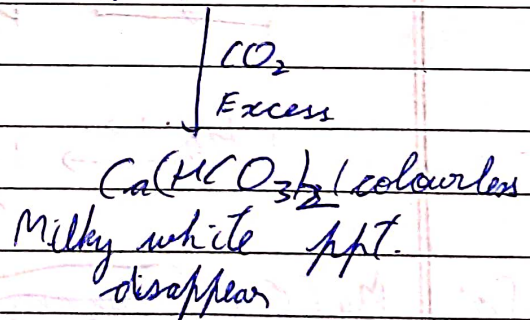 CO₂
Excess
Ca(HCO₃)₂ (colourless
Milky white ppt.
disappear